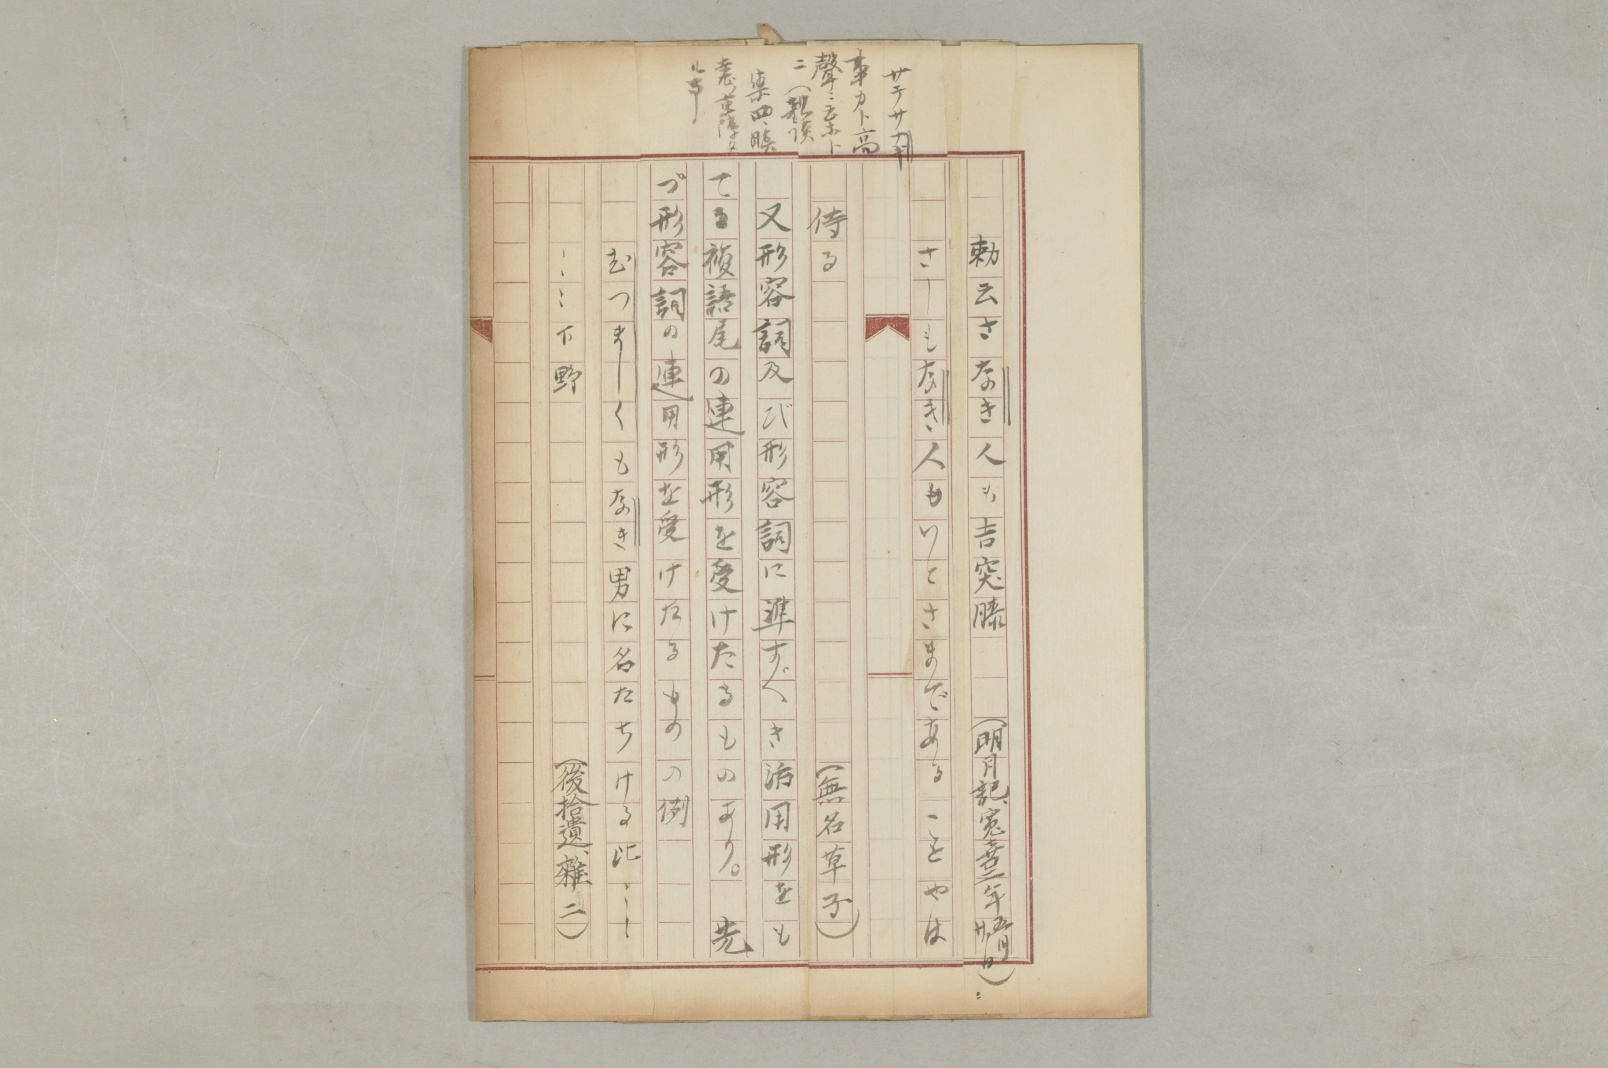 サテサナキ
事カト高
聲ニ云ホト
ニ(
集四、
ル事
勅云さなき人も吉突膝 (明月記、寛喜二年五月廿、日)
さしもなき人もいとさまであることやは
侍る (無名草子)
又形容詞及び形容詞に準ずべき活用形をも
てる複語尾の連用形を受けたるものあり。 先
づ形容詞の連用形を受けたるものの例
むつましくもなき男に名たちける比……
……下野 (後拾遺、雜二)